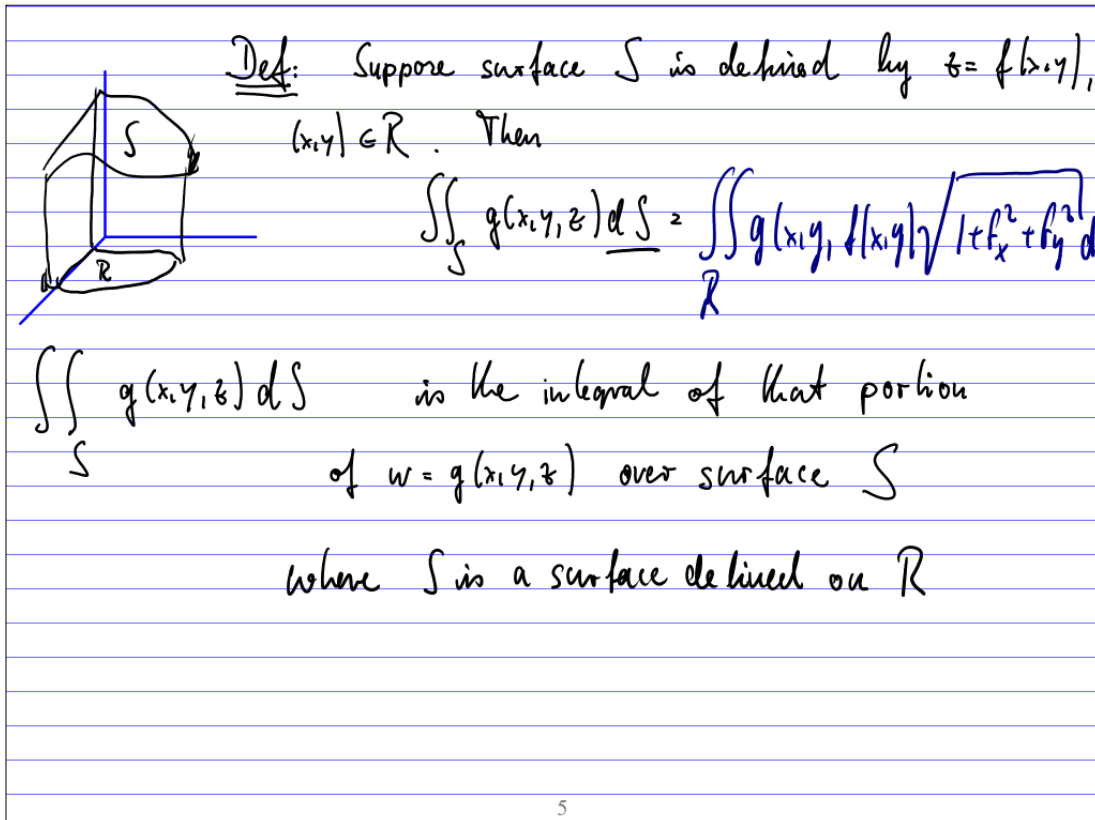 Def: Suppose surface S is defined by z = f(x,y),
(x,y) ∈ R. Then
S
R
∬_S g(x,y,z) dS = ∬_R g(x,y, f(x,y) √(1+f_x^2+f_y^2) d
∬_S g(x,y,z) dS is the integral of that portion
of w = g(x,y,z) over surface S
where S is a surface defined on R
5